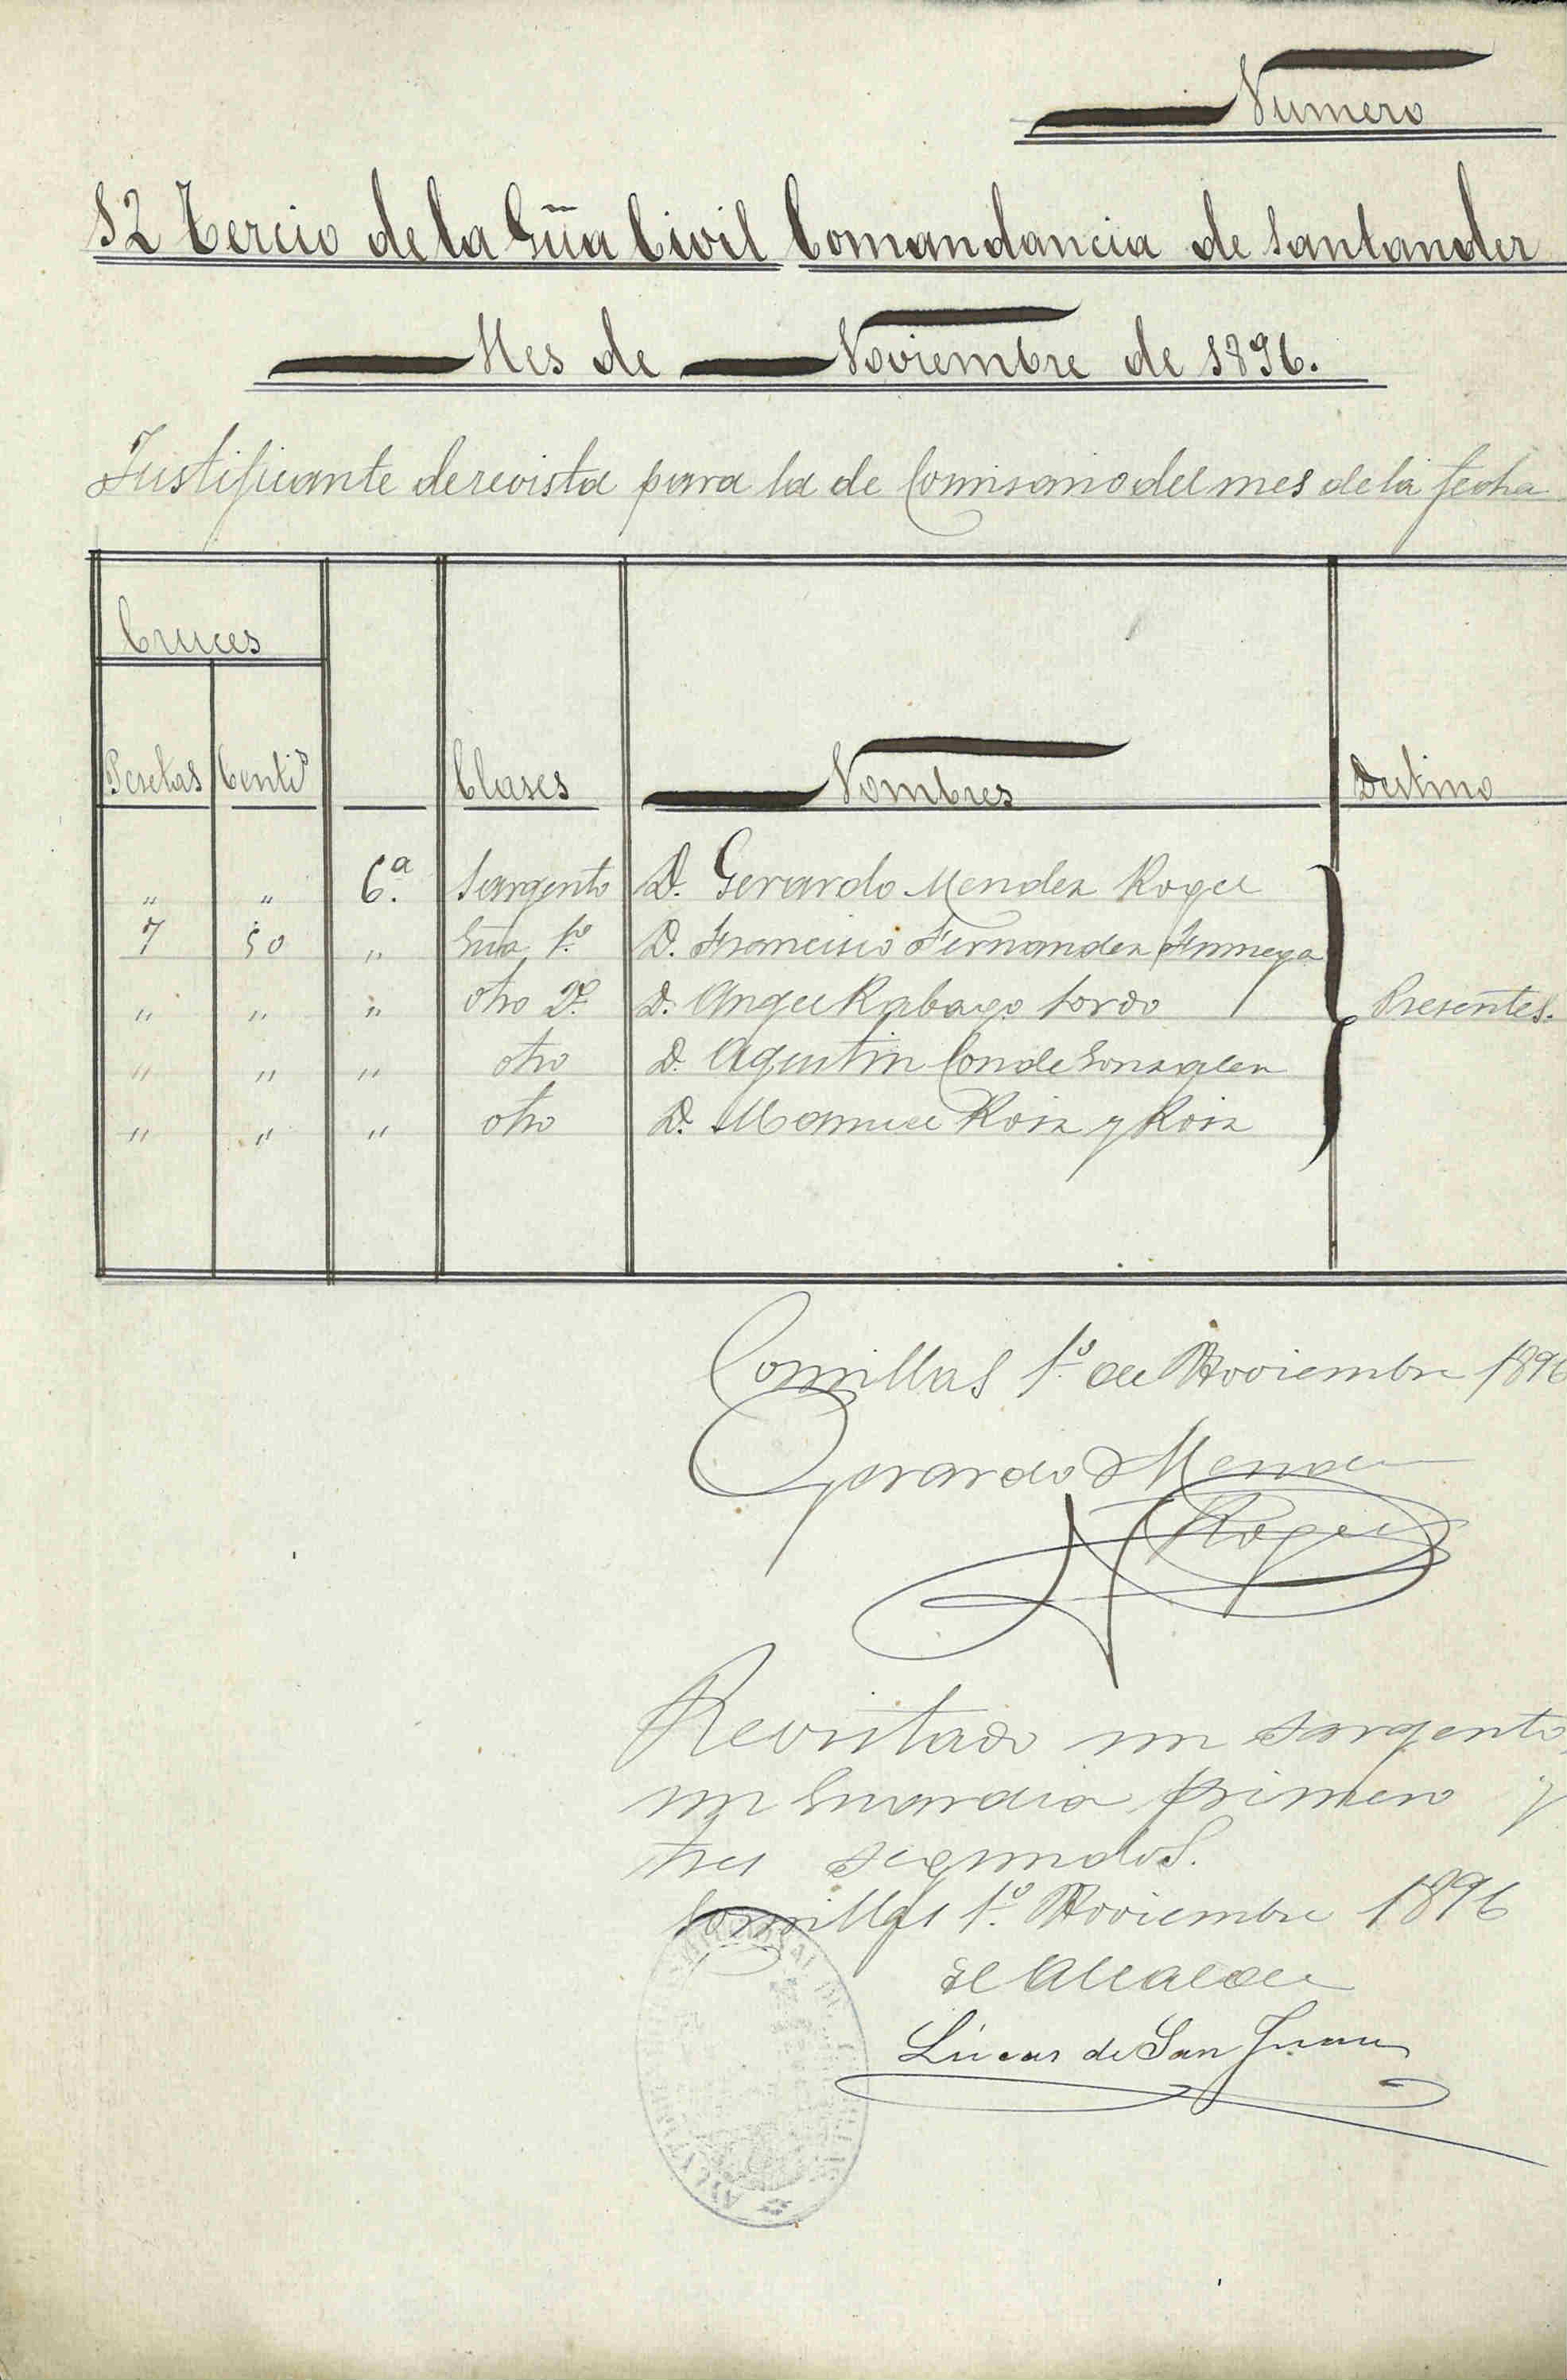 Numero
12 Tercio de la Gũa Civil Comandancia de Santander
Mes de Noviembre de 1896.
Justificante de revista para la de Comisario del mes de la fecha
Cruces
Pesetas Centiˢ Clases Nombres Destino
" " 6.ª Sargento D. Gerardo Mendez Roget
7 50 " Gũa 1.º D. Francisco Fernandez
" " " otro 2.º D. Angel Rabago Sordo Presentes.
" " " otro D. Agustin Conde Gonzalez
" " " otro D. Manuel Roiz y Roiz
Comillas 1.º de Noviembre 1896
Gerardo Mendez
Roget
Revistado un sargento
un Guardia primero y
tres segundos.
Comillas 1.º Noviembre 1896
El Alcalde
Lúcas de San Juan